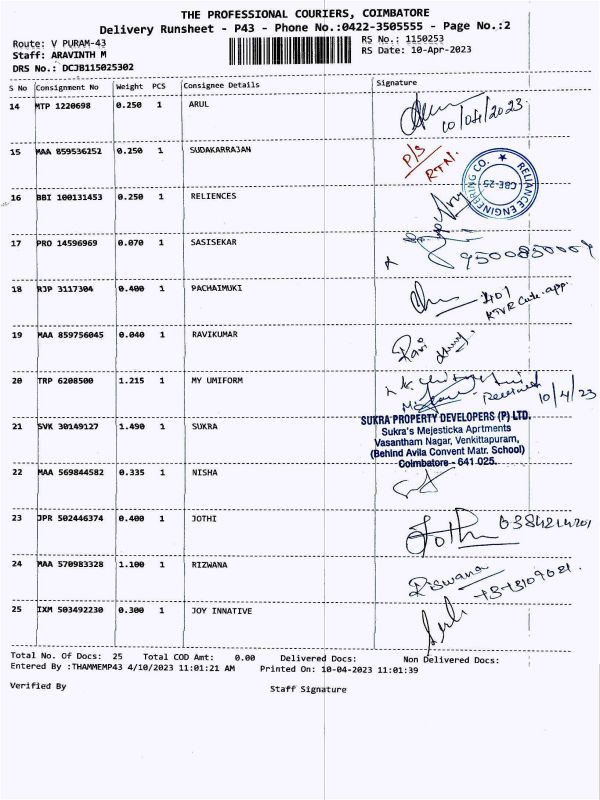 THE PROFESSIONAL COURIERS, COIMBATORE
Delivery Runsheet - P43 - Phone No.:0422-3505555 - Page No.:2
Route: V PURAM-43 RS No.: 1150253
Staff: ARAVINTH M RS Date: 10-Apr-2023
DRS No.: DCJB115025302
S No Consignment No Weight PCS Consignee Details Signature
14 MTP 1220698 0.250 1 ARUL
10/04/2023
15 MAA 859536252 0.250 1 SUDAKARRAJAN P/S
RTN.
16 BBI 100131453 0.250 1 RELIENCES RELIANCE ENGINEERING CO. CBE-25
17 PRO 14596969 0.070 1 SASISEKAR
18 RJP 3117304 0.400 1 PACHAIMUKI
19 MAA 859756045 0.040 1 RAVIKUMAR Ravi
20 TRP 6208500 1.215 1 MY UMIFORM
10/4/23
21 SVK 30149127 1.490 1 SUKRA SUKRA PROPERTY DEVELOPERS (P) LTD.
Sukra's Mejesticka Aprtments
Vasantham Nagar, Venkittapuram,
(Behind Avila Convent Matr. School)
Coimbatore - 641 025.
22 MAA 569844582 0.335 1 NISHA
23 JPR 502446374 0.400 1 JOTHI Jothi
24 MAA 570983328 1.100 1 RIZWANA Riswana
25 IXM 503492230 0.300 1 JOY INNATIVE
Total No. Of Docs: 25 Total COD Amt: 0.00 Delivered Docs: Non Delivered Docs:
Entered By :THAMMEMP43 4/10/2023 11:01:21 AM Printed On: 10-04-2023 11:01:39
Verified By Staff Signature